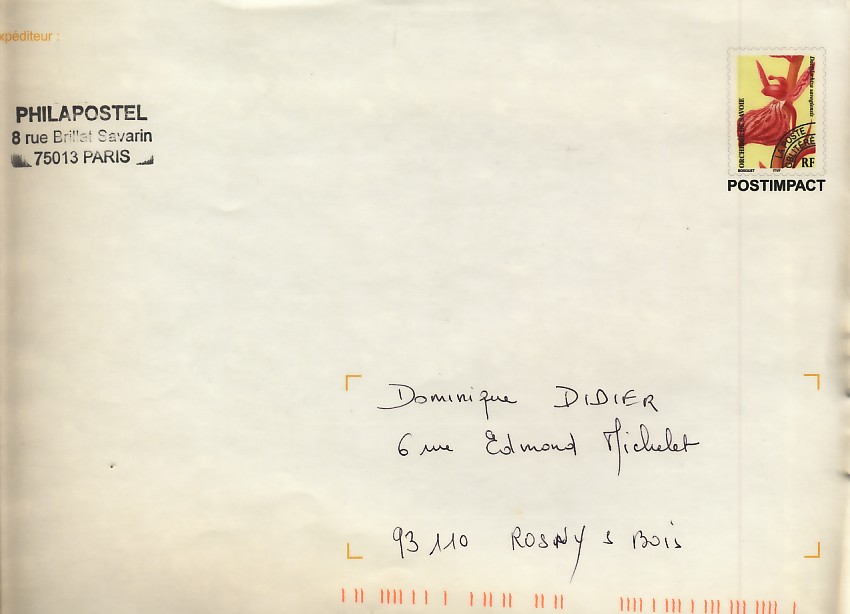 xpéditeur :
PHILAPOSTEL
8 rue Brillat Savarin
75013 PARIS
ORCHIDÉE DE SAVOIE
LA POSTE
OBLITÉRÉ
RF
BOSQUET ITVF
POSTIMPACT
Dominique DIDIER
6 rue Edmond Michelet
93 110 ROSNY S BOIS